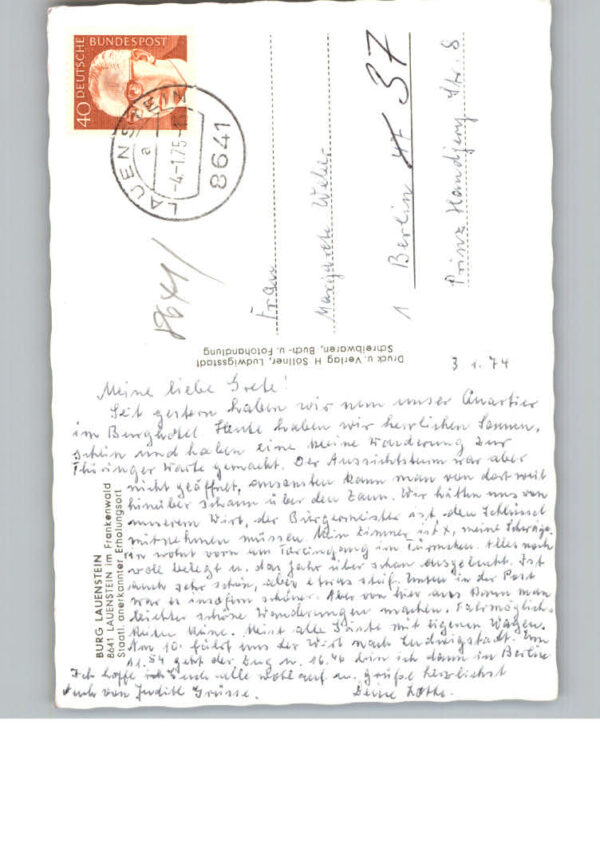 40 DEUTSCHE BUNDESPOST
LAUENSTEIN
a
-4-1.75-
8641
8641/
Frau
Margarete Weber
1 Berlin 47 37
Prinz Handjery Str. 8
Druck u. Verlag H Söllner, Ludwigsstadt
Schreibwaren, Buch- u. Fotohandlung
BURG LAUENSTEIN
8641 LAUENSTEIN im Frankenwald
Staatl. anerkannter Erholungsort
3 1. 74
Meine liebe Grete!
Seit gestern haben wir nun unser Quartier
im Burghotel. Heute haben wir herrlichen Sonnen,
schein und haben eine kleine Wanderung zur
Thüringer Warte gemacht. Der Aussichtsturm war aber
nicht geöffnet, ansonsten kann man von dort weit
hinüber schaun über den Zaun. Wir hätten uns von
unserem Wirt, der Bürgermeister ist den Schlüssel
mitnehmen müssen. Mein Zimmer ist, meine Schwäge-
rin wohnt vorn am Toreingang im Türmchen. Alles noch
voll belegt u. das Jahr über schon ausgebucht. Ist
auch sehr schön, aber etwas steif. Unten in der Post
war es insofern schöner. Aber von hier aus kann man
leichter schöne Wanderungen machen. Fahrmöglich-
keiten keine. Meist alle Gäste mit eigenen Wagen.
Am 10. fährt uns der Wirt nach Ludwigstadt. Um
11.54 geht der Zug u. 16.46 bin ich dann in Berlin
Ich hoffe ich Euch alle wohl auf u. grüße herzlichst
Auch von Judith Grüsse. Deine Käthe.